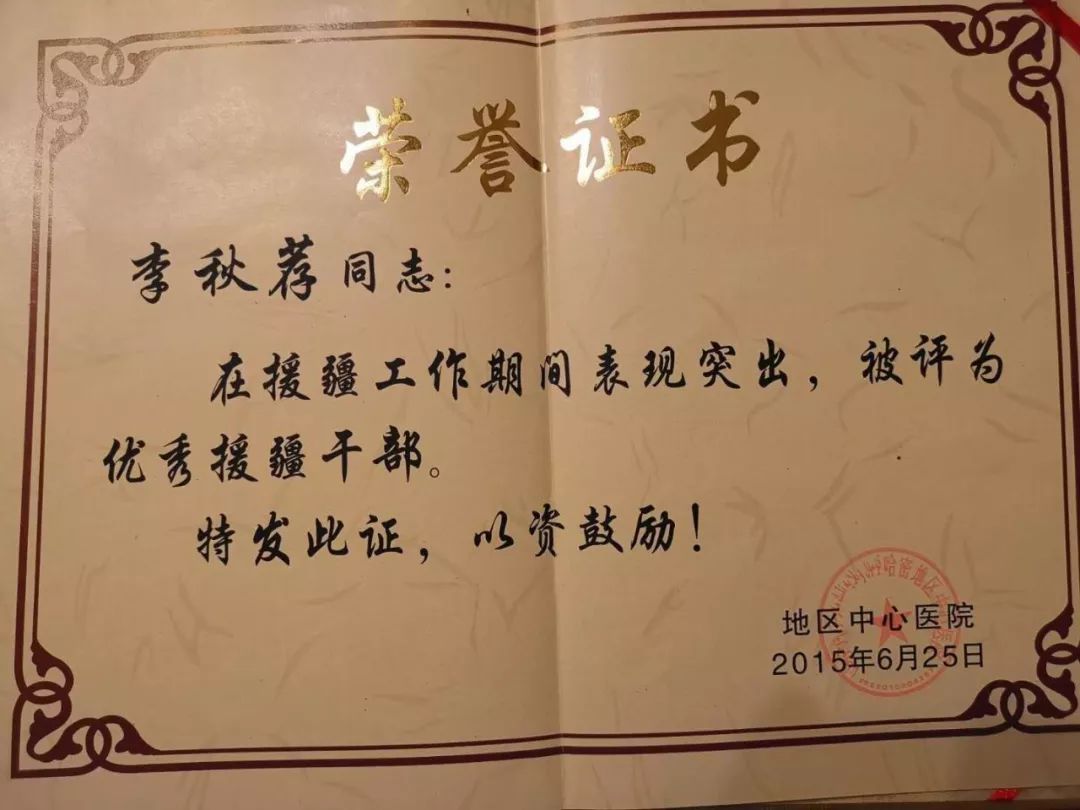 荣誉证书
李秋荐同志：
在援疆工作期间表现突出，被评为
优秀援疆干部。
特发此证，以资鼓励！
哈密地区中心医院
地区中心医院
2015年6月25日